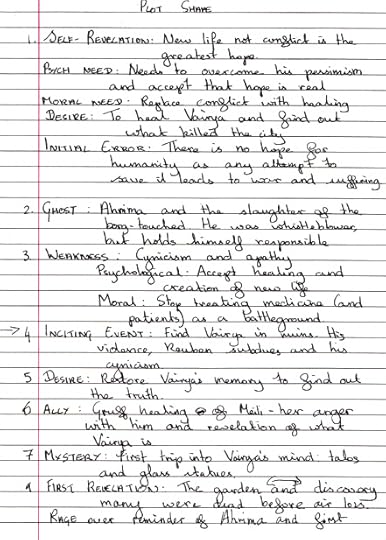 PLOT SHAPE
1. SELF-REVELATION: New life not conflict is the
greatest hope.
PSYCH NEED: Needs to overcome his pessimism
and accept that hope is real
MORAL NEED: Replace conflict with healing
DESIRE: To heal Vairya and find out
what killed the city
INITIAL ERROR: There is no hope for
humanity as any attempt to
save it leads to war and suffering
2. GHOST: Ahnima and the slaughter of the
borg-touched. He was whistleblower,
but holds himself responsible
3. WEAKNESS: Cynicism and apathy
Psychological: Accept healing and
creation of new life
Moral: Stop treating medicine (and
patients) as a battleground.
→ 4. INCITING EVENT: Find Vairya in ruins. His
violence, Reuban subdues and his
cynicism.
5 DESIRE: Restore Vairya's memory to find out
the truth.
6 ALLY: Gruff healing of Meili - her anger
with him and revelation of what
Vairya is
7 MYSTERY: First trip into Vairya's mind: talos
and glass statues.
9 FIRST REVELATION: The garden and discovery
many were dead before air loss.
RAGE over reminder of Ahnima and first